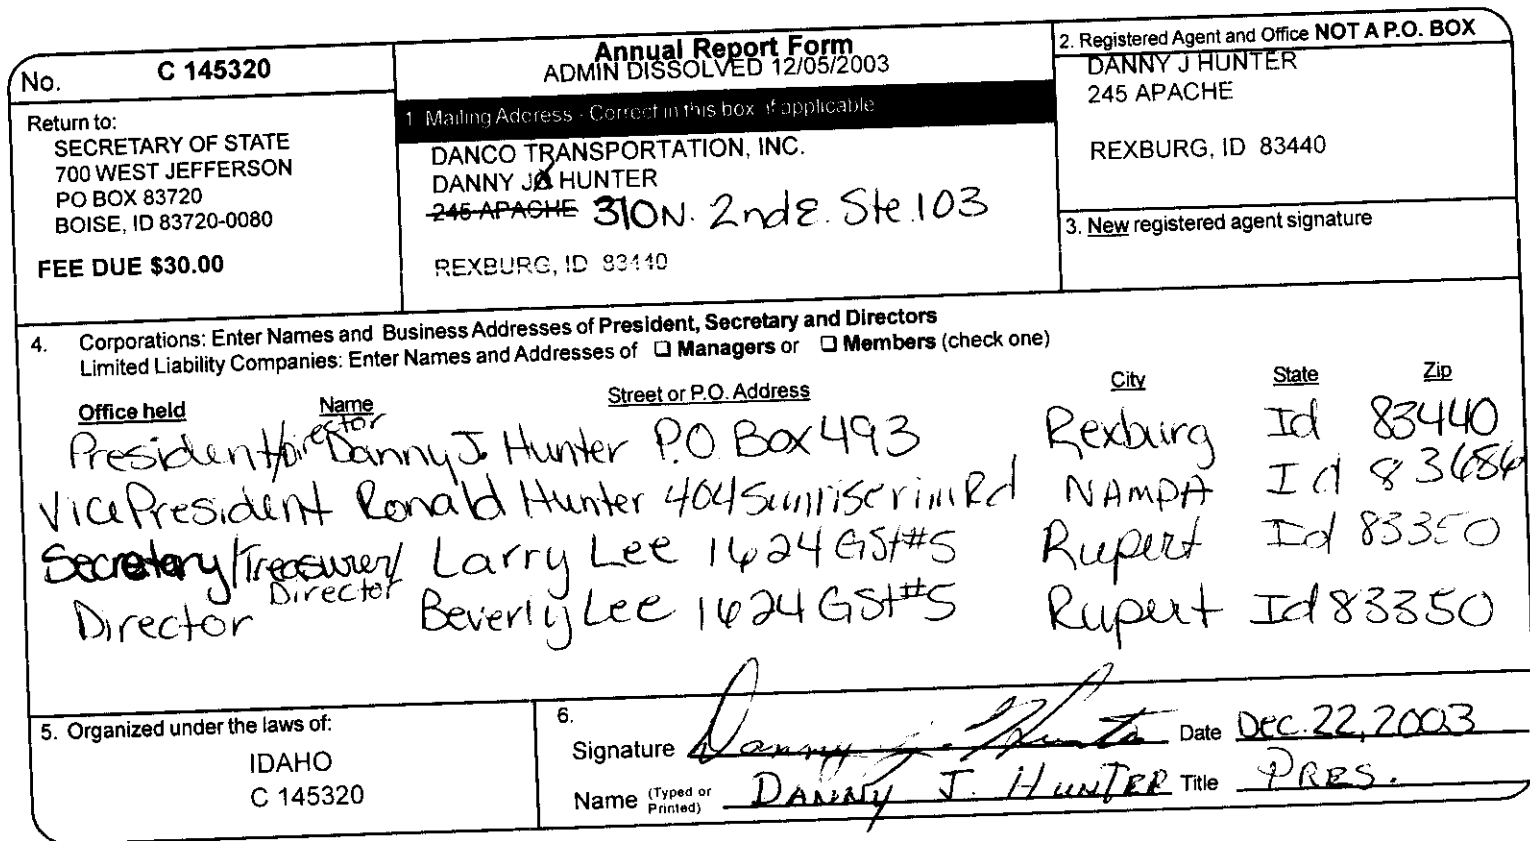 No. C 145320
Return to:
SECRETARY OF STATE
700 WEST JEFFERSON
PO BOX 83720
BOISE, ID 83720-0080
FEE DUE $30.00
Annual Report Form
ADMIN DISSOLVED 12/05/2003
1 Mailing Address - Correct in this box if applicable
DANCO TRANSPORTATION, INC.
DANNY J HUNTER
245 APACHE 310 N. 2nd E. Ste. 103
REXBURG, ID 83440
2. Registered Agent and Office NOT A P.O. BOX
DANNY J HUNTER
245 APACHE
REXBURG, ID 83440
3. New registered agent signature
4. Corporations: Enter Names and Business Addresses of President, Secretary and Directors
Limited Liability Companies: Enter Names and Addresses of ❑ Managers or ❑ Members (check one)
Office held Name Street or P.O. Address City State Zip
President/Director Danny J. Hunter P.O. Box 493 Rexburg Id 83440
Vice President Ronald Hunter 404 Sunrise rim Rd NAMPA Id 83686
Secretary/Treasurer/ Larry Lee 1624 G St #5 Rupert Id 83350
Director
Director Beverly Lee 1624 G St #5 Rupert Id 83350
5. Organized under the laws of:
IDAHO
C 145320
6.
Signature Danny J. Hunter Date Dec. 22, 2003
Name (Typed or Printed) DANNY J. HUNTER Title PRES.